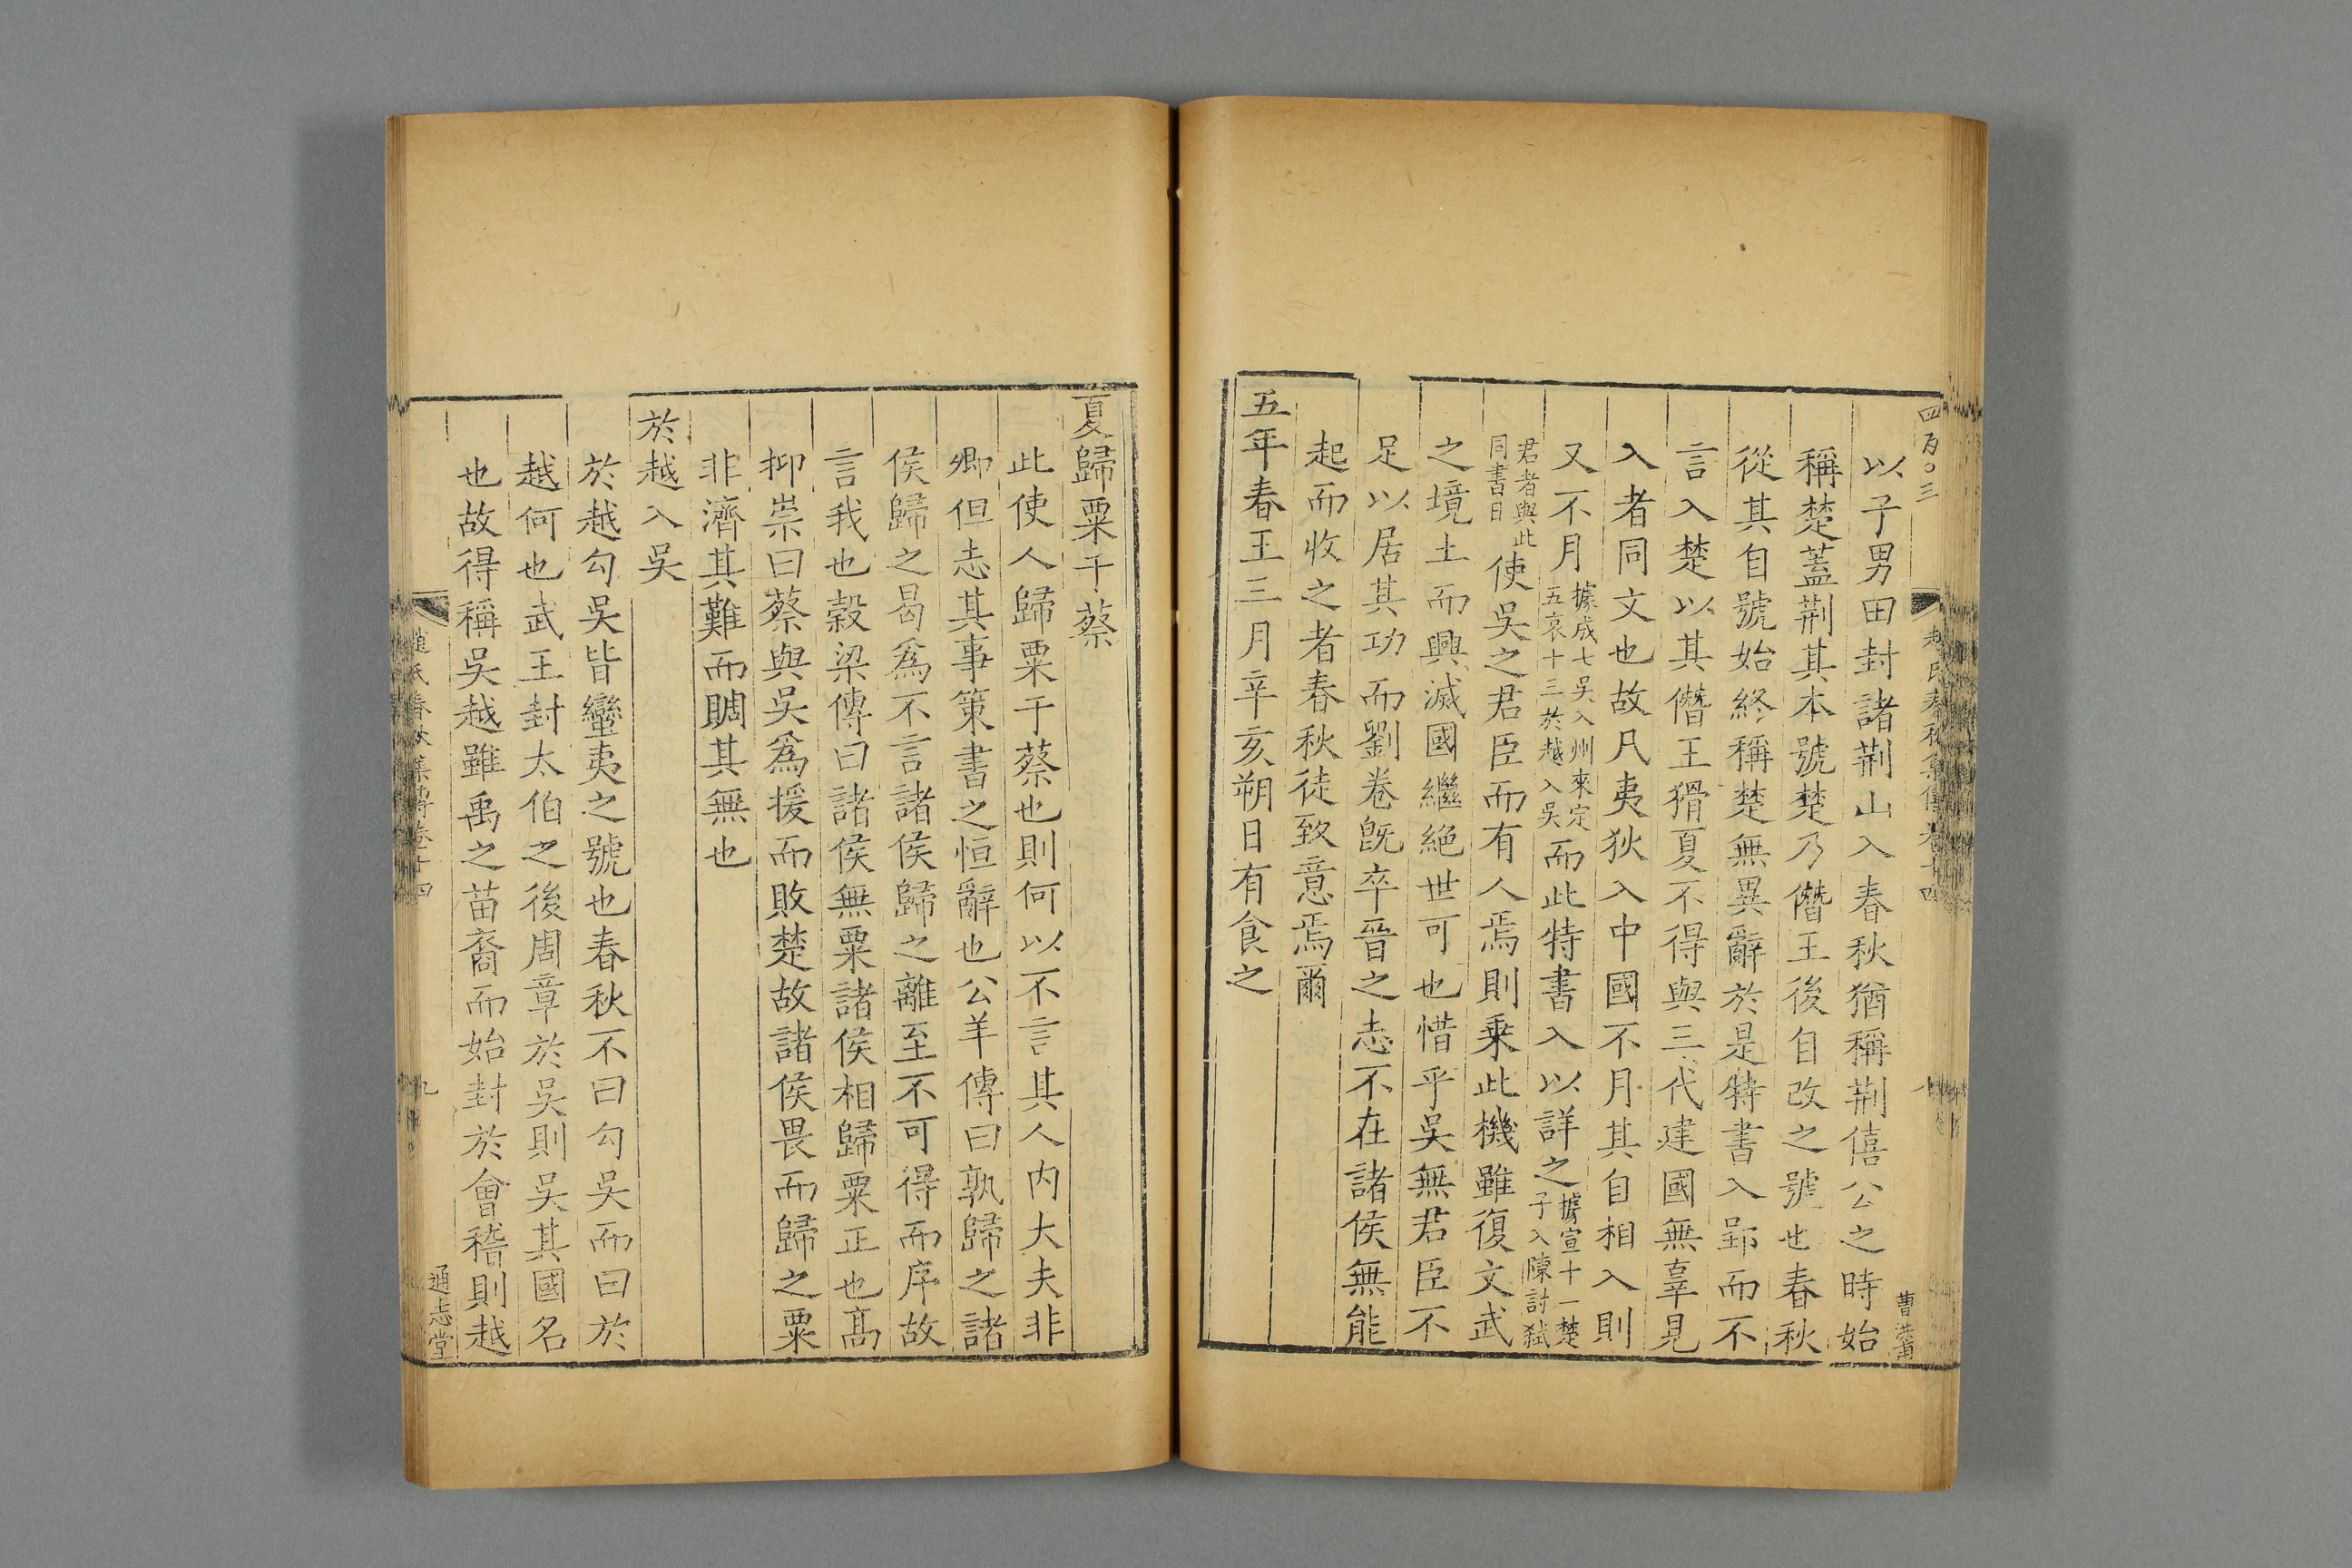 四百〇三
趙氏春秋集傳卷十四
八
曹茝
以子男田封諸荆山入春秋猶稱荆僖公之時始
稱楚蓋荆其本號楚乃僭王後自改之號也春秋
從其自號始終稱楚無異辭於是特書入郢而不
言入楚以其僭王猾夏不得與三代建國無辜見
入者同文也故凡夷狄入中國不月其自相入則
又不月據成七吳入州來定五哀十三於越入吳而此特書入以詳之據宣十一楚子入陳討弑
君者與此同書日使吳之君臣而有人焉則乗此機雖復文武
之境土而興滅國繼絶世可也惜乎吳無君臣不
足以居其功而劉卷旣卒晉之志不在諸侯無能
起而收之者春秋徒致意焉爾
五年春王三月辛亥朔日有食之
夏歸粟于蔡
此使人歸粟于蔡也則何以不言其人内大夫非
卿但志其事策書之恒辭也公羊傳曰孰歸之諸
侯歸之曷爲不言諸侯歸之離至不可得而序故
言我也穀梁傳曰諸侯無粟諸侯相歸粟正也髙
抑崇曰蔡與吳爲援而敗楚故諸侯畏而歸之粟
非濟其難而賙其無也
於越入吳
於越勾吳皆蠻夷之號也春秋不曰勾吳而曰於
越何也武王封太伯之後周章於吳則吳其國名
也故得稱吳越雖禹之苗裔而始封於會稽則越
趙氏春秋集傳卷十四
九
通志堂